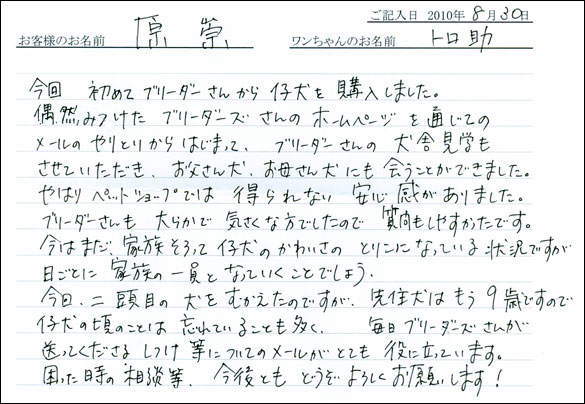 ご記入日 2010年 8月30日
お客様のお名前 原 崇 ワンちゃんのお名前 トロ助
今回 初めて ブリーダーさんから 仔犬を 購入しました。
偶然みつけた ブリーダーズさんの ホームページを 通じての
メールのやりとりからはじまって、 ブリーダーさんの 犬舎見学も
させていただき、お父さん犬、お母さん犬にも 会うことができました。
やはり ペットショップでは 得られない 安心感がありました。
ブリーダーさんも 大らかで 気さくな方でしたので 質問もしやすかったです。
今はまだ、家族そろって仔犬のかわいさの とりこになっている 状況ですが
日ごとに 家族の一員と なっていくことでしょう。
今回、二頭目の 犬をむかえたのですが、先住犬はもう 9歳ですので
仔犬の頃のことは 忘れていることも多く、 毎日ブリーダーズさんが
送ってくださる しつけ 等についてのメールがとても 役に立っています。
困った時の 相談等、 今後とも どうぞよろしくお願いします！